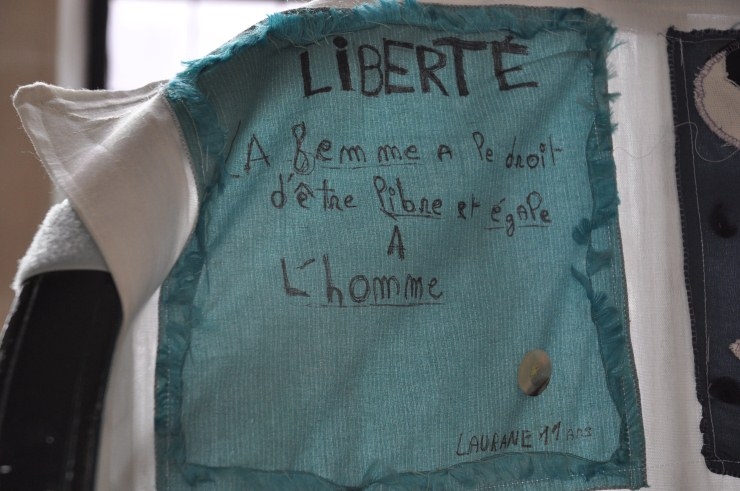 LIBERTÉ
LA femme A le droit
d'être libre et égale
A
L'homme
LAURANE 11 ans